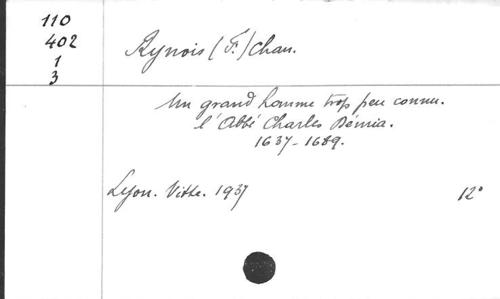 110
402
1
3
Rynois (F.) Chan.
Un grand homme trop peu connu.
l'Abbé Charles Démia.
1637-1689.
Lyon. Vitte. 1937
12°